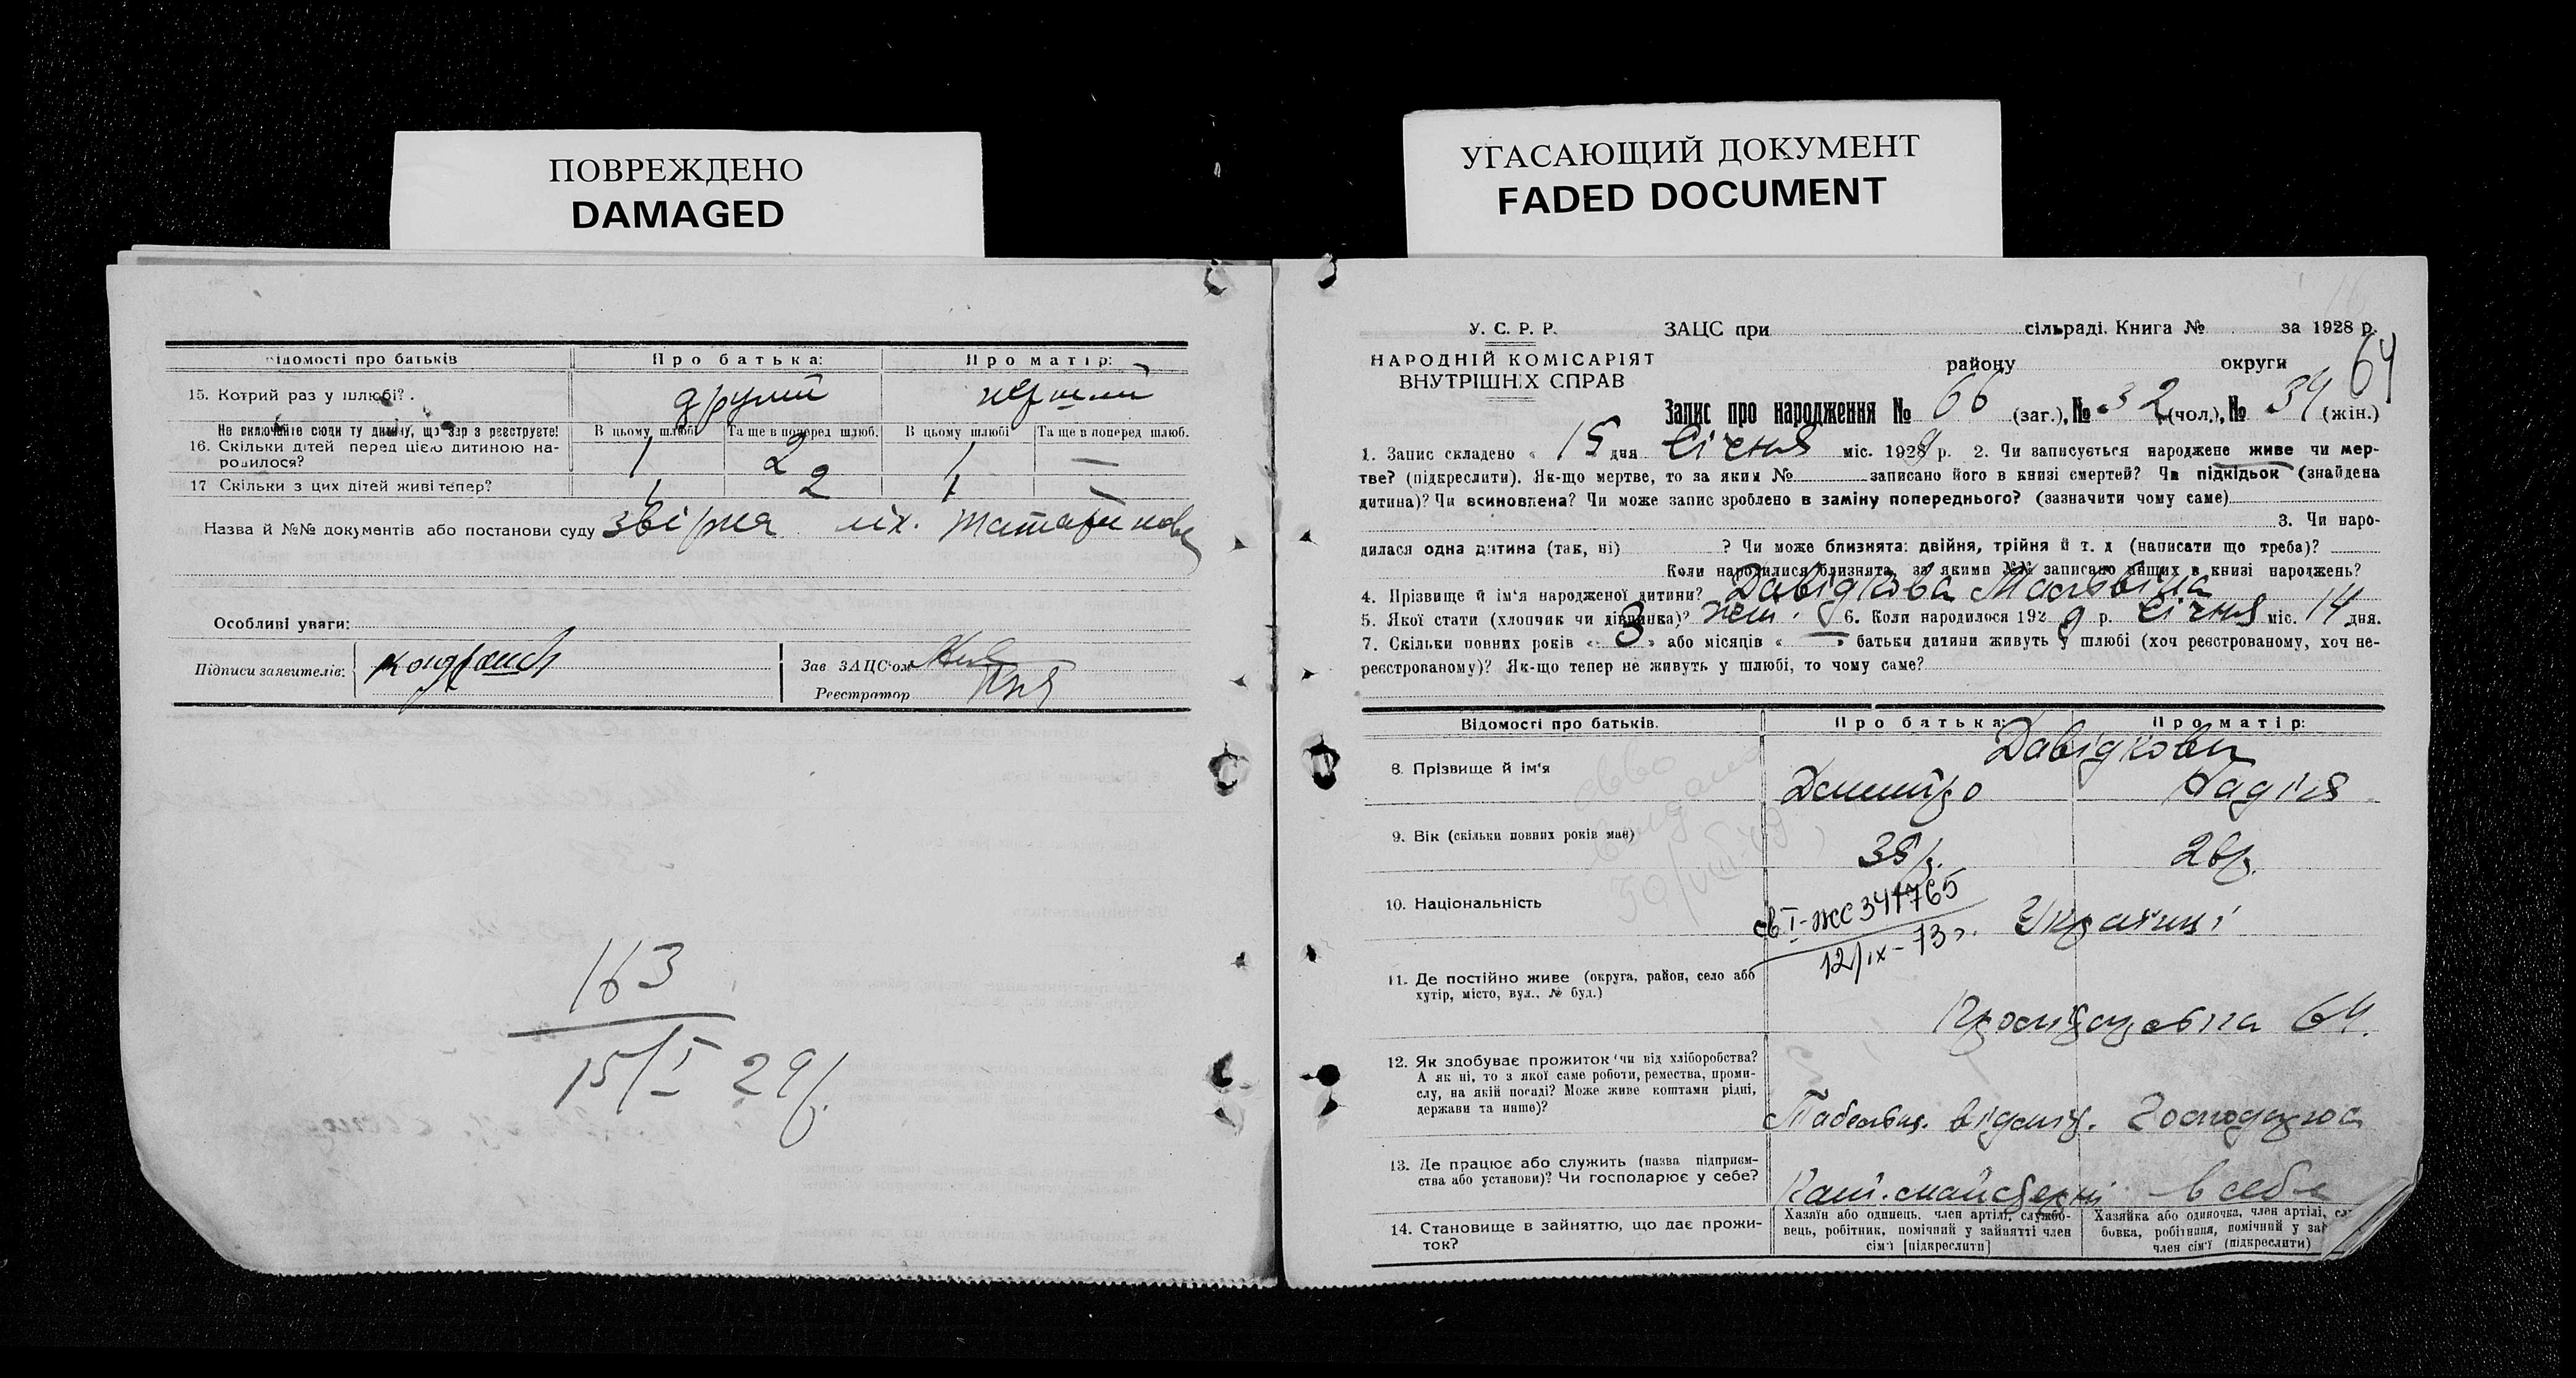 ПОВРЕЖДЕНО
DAMAGED
УГАСАЮЩИЙ ДОКУМЕНТ
FADED DOCUMENT
Відомості про батьків
Про батька:
Про матір:
15. Котрий раз у шлюбі?
другий
перший
Не включайте сюди ту дитину, що зар з реєструєте!
В цьому шлюбі
Та ще в поперед шлюб.
В цьому шлюбі
Та ще в поперед шлюб.
16. Скільки дітей перед цією дитиною на-
родилося?
1 2 1 —
17 Скільки з цих дітей живі тепер?
1 2 1 —
Назва й №№ документів або постанови суду звірка
Особливі уваги:
Підписи заявителів:
Зав ЗАЦС'ом
Реєстратор
163
15/I 29р.
У. С. Р. Р.
НАРОДНІЙ КОМІСАРІЯТ
ВНУТРІШНІХ СПРАВ
ЗАЦС при сільраді. Книга № за 1928 р.
району округи
64
Запис про народження № 66 (заг.), № 32 (чол.), № 34 (жін.)
1. Запис складено « 15 дня Січня міс. 1929 р. 2. Чи записується народжене живе чи мер-
тве? (підкреслити). Як-що мертве, то за яким № записано його в книзі смертей? Чи підкідьок (знайдена
дитина)? Чи всиновлена? Чи може запис зроблено в заміну попереднього? (зазначити чому саме)
3. Чи наро-
дилася одна дитина (так, ні) ? Чи може близнята: двійня, трійня й т. д (написати що треба)?
Коли народилися близнята, за якими №№ записано инших в книзі народжень?
4. Прізвище й ім'я народженої дитини? Давідкова Мальвіна
5. Якої стати (хлопчик чи дівчинка)? жін. 6. Коли народилося 1929 р. січня міс. 14 дня.
7. Скільки повних років « 3 » або місяців « — » батьки дитини живуть у шлюбі (хоч реєстрованому, хоч не-
реєстрованому)? Як-що тепер не живуть у шлюбі, то чому саме?
Відомості про батьків.
Про батька:
Про матір:
Давідкови
8. Прізвище й ім'я
Дмитро
Надія
9. Вік (скільки повних років має)
38р.
26р.
10. Національність
св I-ЖС 341765
12/IX-73 г.
Українці
11. Де постійно живе (округа, район, село або
хутір, місто, вул., № буд.)
64
12. Як здобуває прожиток чи від хліборобства?
А як ні, то з якої саме роботи, ремества, проми-
слу, на якій посаді? Може живе коштами рідні,
держави та инше)?
Табельщ. відділу.
Господарює
13. Де працює або служить (назва підприєм-
ства або установи)? Чи господарює у себе?
майстерні
в себе
14. Становище в зайняттю, що дає прожи-
ток?
Хазяїн або одинець, член артілі, службо-
вець, робітник, помічний у зайнятті член
сім'ї [підкреслити]
Хазяйка або одиночка, член артілі, сл
бовка, робітниця, помічний у зай
член сім'ї (підкреслити)